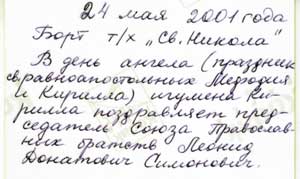 24 мая 2001 года
Борт т/х „Св. Никола"
В день ангела (праздник
св. равноапостольных Мефодия
и Кирилла) игумена Ки-
рилла поздравляет пред-
седатель Союза Православ-
ных братств Леонид
Донатович Симонович.